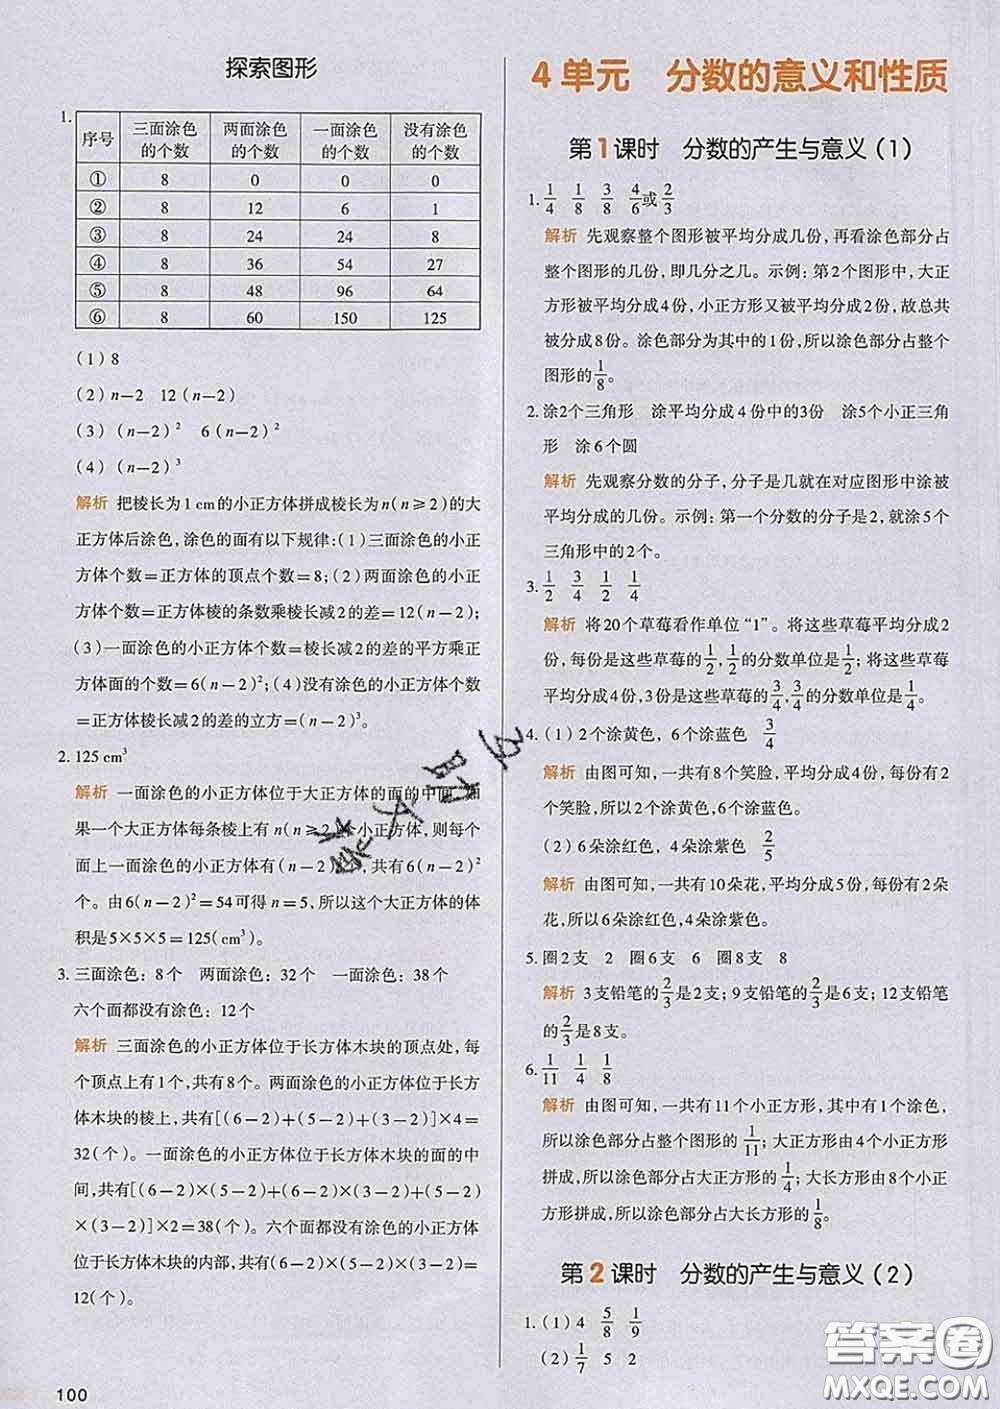 探索图形
1.
序号 三面涂色的个数 两面涂色的个数 一面涂色的个数 没有涂色的个数
① 8 0 0 0
② 8 12 6 1
③ 8 24 24 8
④ 8 36 54 27
⑤ 8 48 96 64
⑥ 8 60 150 125
(1) 8
(2) n－2 12(n－2)
(3) (n－2)² 6(n－2)²
(4) (n－2)³
解析 把棱长为1 cm的小正方体拼成棱长为n(n≥2)的大
正方体后涂色,涂色的面有以下规律:(1)三面涂色的小正
方体个数＝正方体的顶点个数＝8;(2)两面涂色的小正
方体个数＝正方体棱的条数乘棱长减2的差＝12(n－2);
(3)一面涂色的小正方体个数＝棱长减2的差的平方乘正
方体面的个数＝6(n－2)²;(4)没有涂色的小正方体个数
＝正方体棱长减2的差的立方＝(n－2)³。
2. 125 cm³
解析 一面涂色的小正方体位于大正方体的面的中间,如
果一个大正方体每条棱上有n(n≥2)个小正方体,则每个
面上一面涂色的小正方体有(n－2)²个,共有6(n－2)²
个。由6(n－2)²＝54可得n＝5,所以这个大正方体的体
积是5×5×5＝125(cm³)。
3. 三面涂色：8个 两面涂色：32个 一面涂色：38个
六个面都没有涂色：12个
解析 三面涂色的小正方体位于长方体木块的顶点处,每
个顶点上有1个,共有8个。两面涂色的小正方体位于长方
体木块的棱上,共有[(6－2)＋(5－2)＋(3－2)]×4＝
32(个)。一面涂色的小正方体位于长方体木块的面的中
间,共有[(6－2)×(5－2)＋(6－2)×(3－2)＋(5－2)
×(3－2)]×2＝38(个)。六个面都没有涂色的小正方体
位于长方体木块的内部,共有(6－2)×(5－2)×(3－2)＝
12(个)。
100
4 单元 分数的意义和性质
第1课时 分数的产生与意义(1)
1. 1/4 1/8 3/8 4/6或2/3
解析 先观察整个图形被平均分成几份,再看涂色部分占
整个图形的几份,即几分之几。示例:第2个图形中,大正
方形被平均分成4份,小正方形又被平均分成2份,故总共
被分成8份。涂色部分为其中的1份,所以涂色部分占整个
图形的1/8。
2. 涂2个三角形 涂平均分成4份中的3份 涂5个小正三角
形 涂6个圆
解析 先观察分数的分子,分子是几就在对应图形中涂被
平均分成的几份。示例:第一个分数的分子是2,就涂5个
三角形中的2个。
3. 1/2 3/4 1/2 1/4
解析 将20个草莓看作单位“1”。将这些草莓平均分成2
份,每份是这些草莓的1/2,1/2的分数单位是1/2;将这些草莓
平均分成4份,3份是这些草莓的3/4,3/4的分数单位是1/4。
4. (1) 2个涂黄色,6个涂蓝色 3/4
解析 由图可知,一共有8个笑脸,平均分成4份,每份有2
个笑脸,所以2个涂黄色,6个涂蓝色。
(2) 6朵涂红色,4朵涂紫色 2/5
解析 由图可知,一共有10朵花,平均分成5份,每份有2朵
花,所以6朵涂红色,4朵涂紫色。
5. 圈2支 2 圈6支 6 圈8支 8
解析 3支铅笔的2/3是2支;9支铅笔的2/3是6支;12支铅笔
的2/3是8支。
6. 1/11 1/4 1/8
解析 由图可知,一共有11个小正方形,其中有1个涂色,
所以涂色部分占整个图形的1/11;大正方形由4个小正方形
拼成,所以涂色部分占大正方形的1/4;大长方形由8个小正
方形拼成,所以涂色部分占大长方形的1/8。
第2课时 分数的产生与意义(2)
1. (1) 4 5/8 1/9
(2) 1/7 5 2
答案圈
MXQE.COM